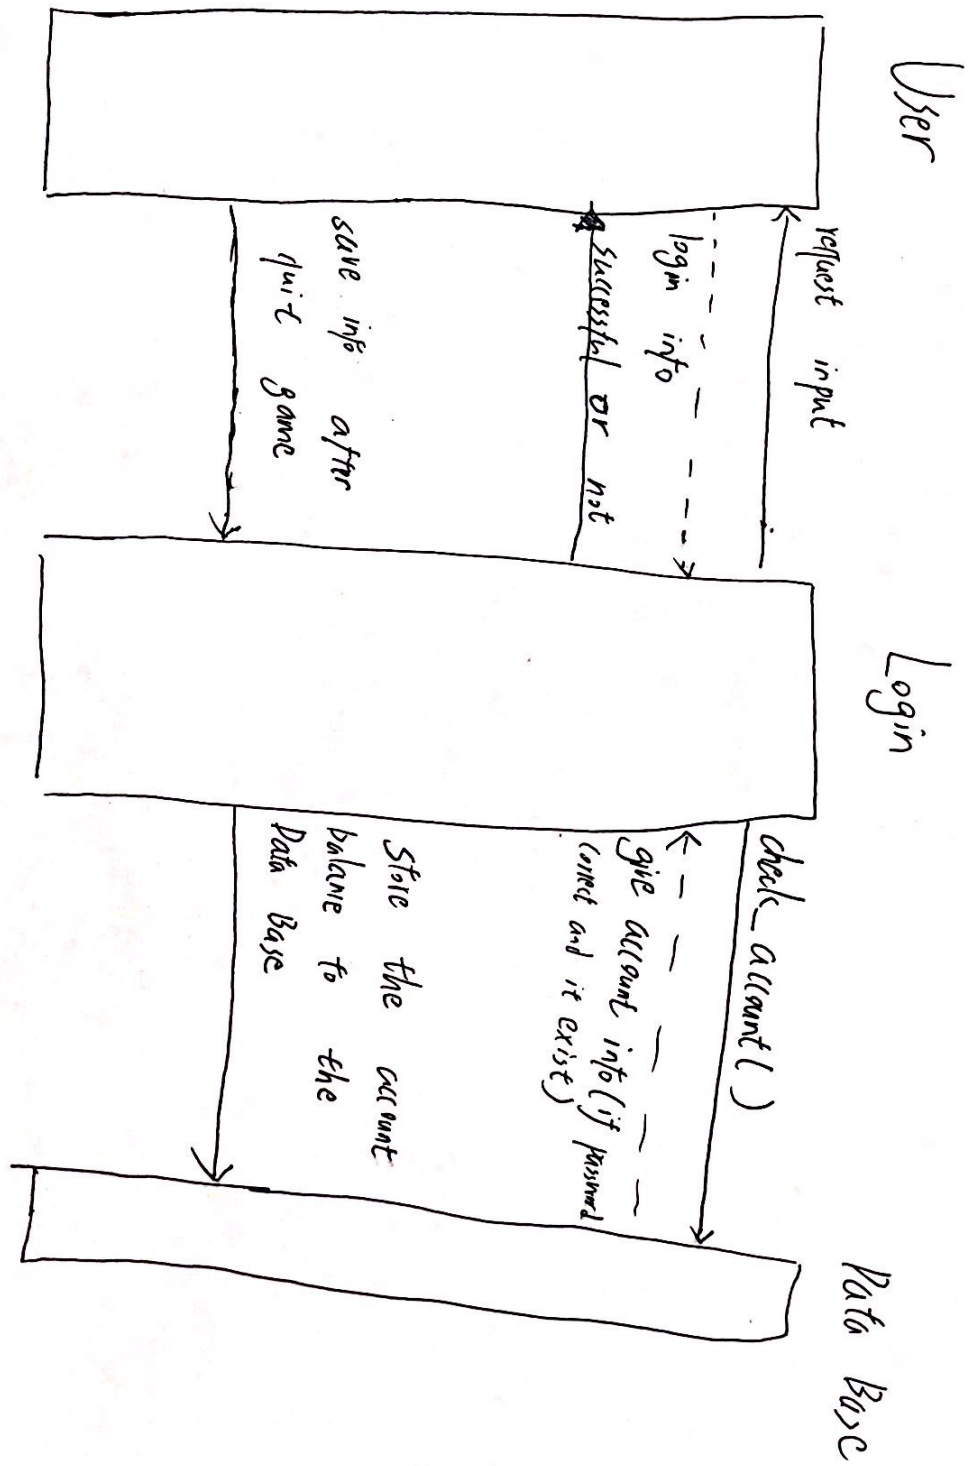 User
Login
Data Base
request input
login info
successful or not
save info after
quit game
check_account()
give account info (if password
correct and it exist)
Store the account
balance to the
Data Base